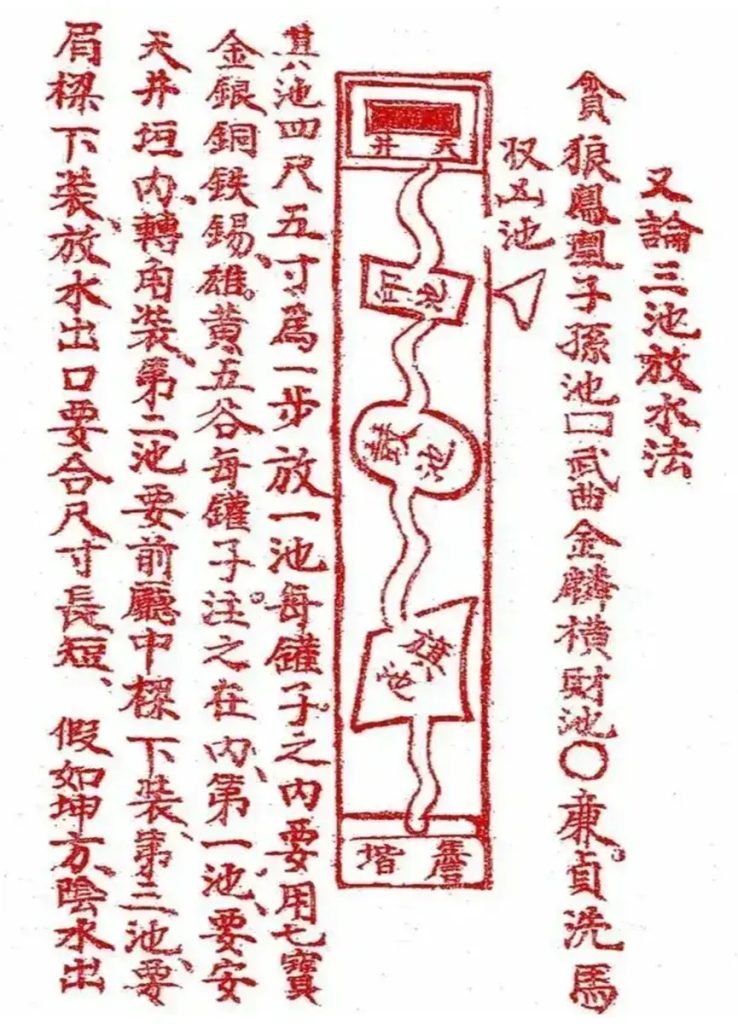 又論三池放水法
貪狼鳳凰子孫池□武曲金麟横財池○廉貞洗馬
凶池
天井
印池
鼓池
旗池
其池四尺五寸爲一步放一池每罐子之内要用七寳
金銀銅鉄錫、雄黄、五谷每罐子注之在内、第一池、要安
天井垣内、轉角装、第二池要前廳中樑下装、第三池、要
眉樑下装、放水出口要合尺寸長短、假如坤方、陰水出